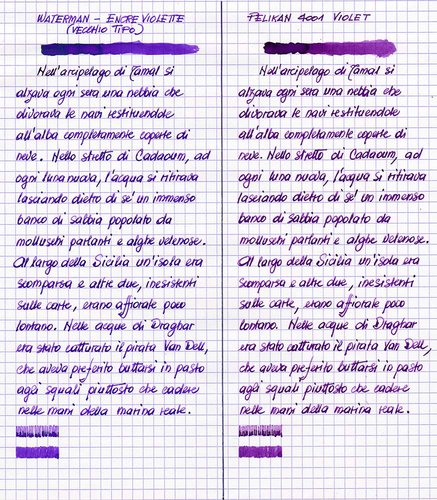 WATERMAN - ENCRE VIOLETTE
(VECCHIO TIPO)
Nell'arcipelago di Tamal si
alzava ogni sera una nebbia che
divorava le navi restituendole
all'alba completamente coperte di
neve. Nello stretto di Cadaoum, ad
ogni luna nuova, l'acqua si ritirava
lasciando dietro di se' un immenso
banco di sabbia popolato da
molluschi parlanti e alghe velenose.
Al largo della Sicilia un'isola era
scomparsa e altre due, inesistenti
sulle carte, erano affiorate poco
lontano. Nelle acque di Dragbar
era stato catturato il pirata Van Dell,
che aveva preferito buttarsi in pasto
agli squali piuttosto che cadere
nelle mani della marina reale.
PELIKAN 4001 VIOLET
Nell'arcipelago di Tamal si
alzava ogni sera una nebbia che
divorava le navi restituendole
all'alba completamente coperte di
neve. Nello stretto di Cadaoum, ad
ogni luna nuova, l'acqua si ritirava
lasciando dietro di se' un immenso
banco di sabbia popolato da
molluschi parlanti e alghe velenose.
Al largo della Sicilia un'isola era
scomparsa e altre due, inesistenti
sulle carte, erano affiorate poco
lontano. Nelle acque di Dragbar
era stato catturato il pirata Van Dell,
che aveva preferito buttarsi in pasto
agli squali piuttosto che cadere
nelle mani della marina reale.